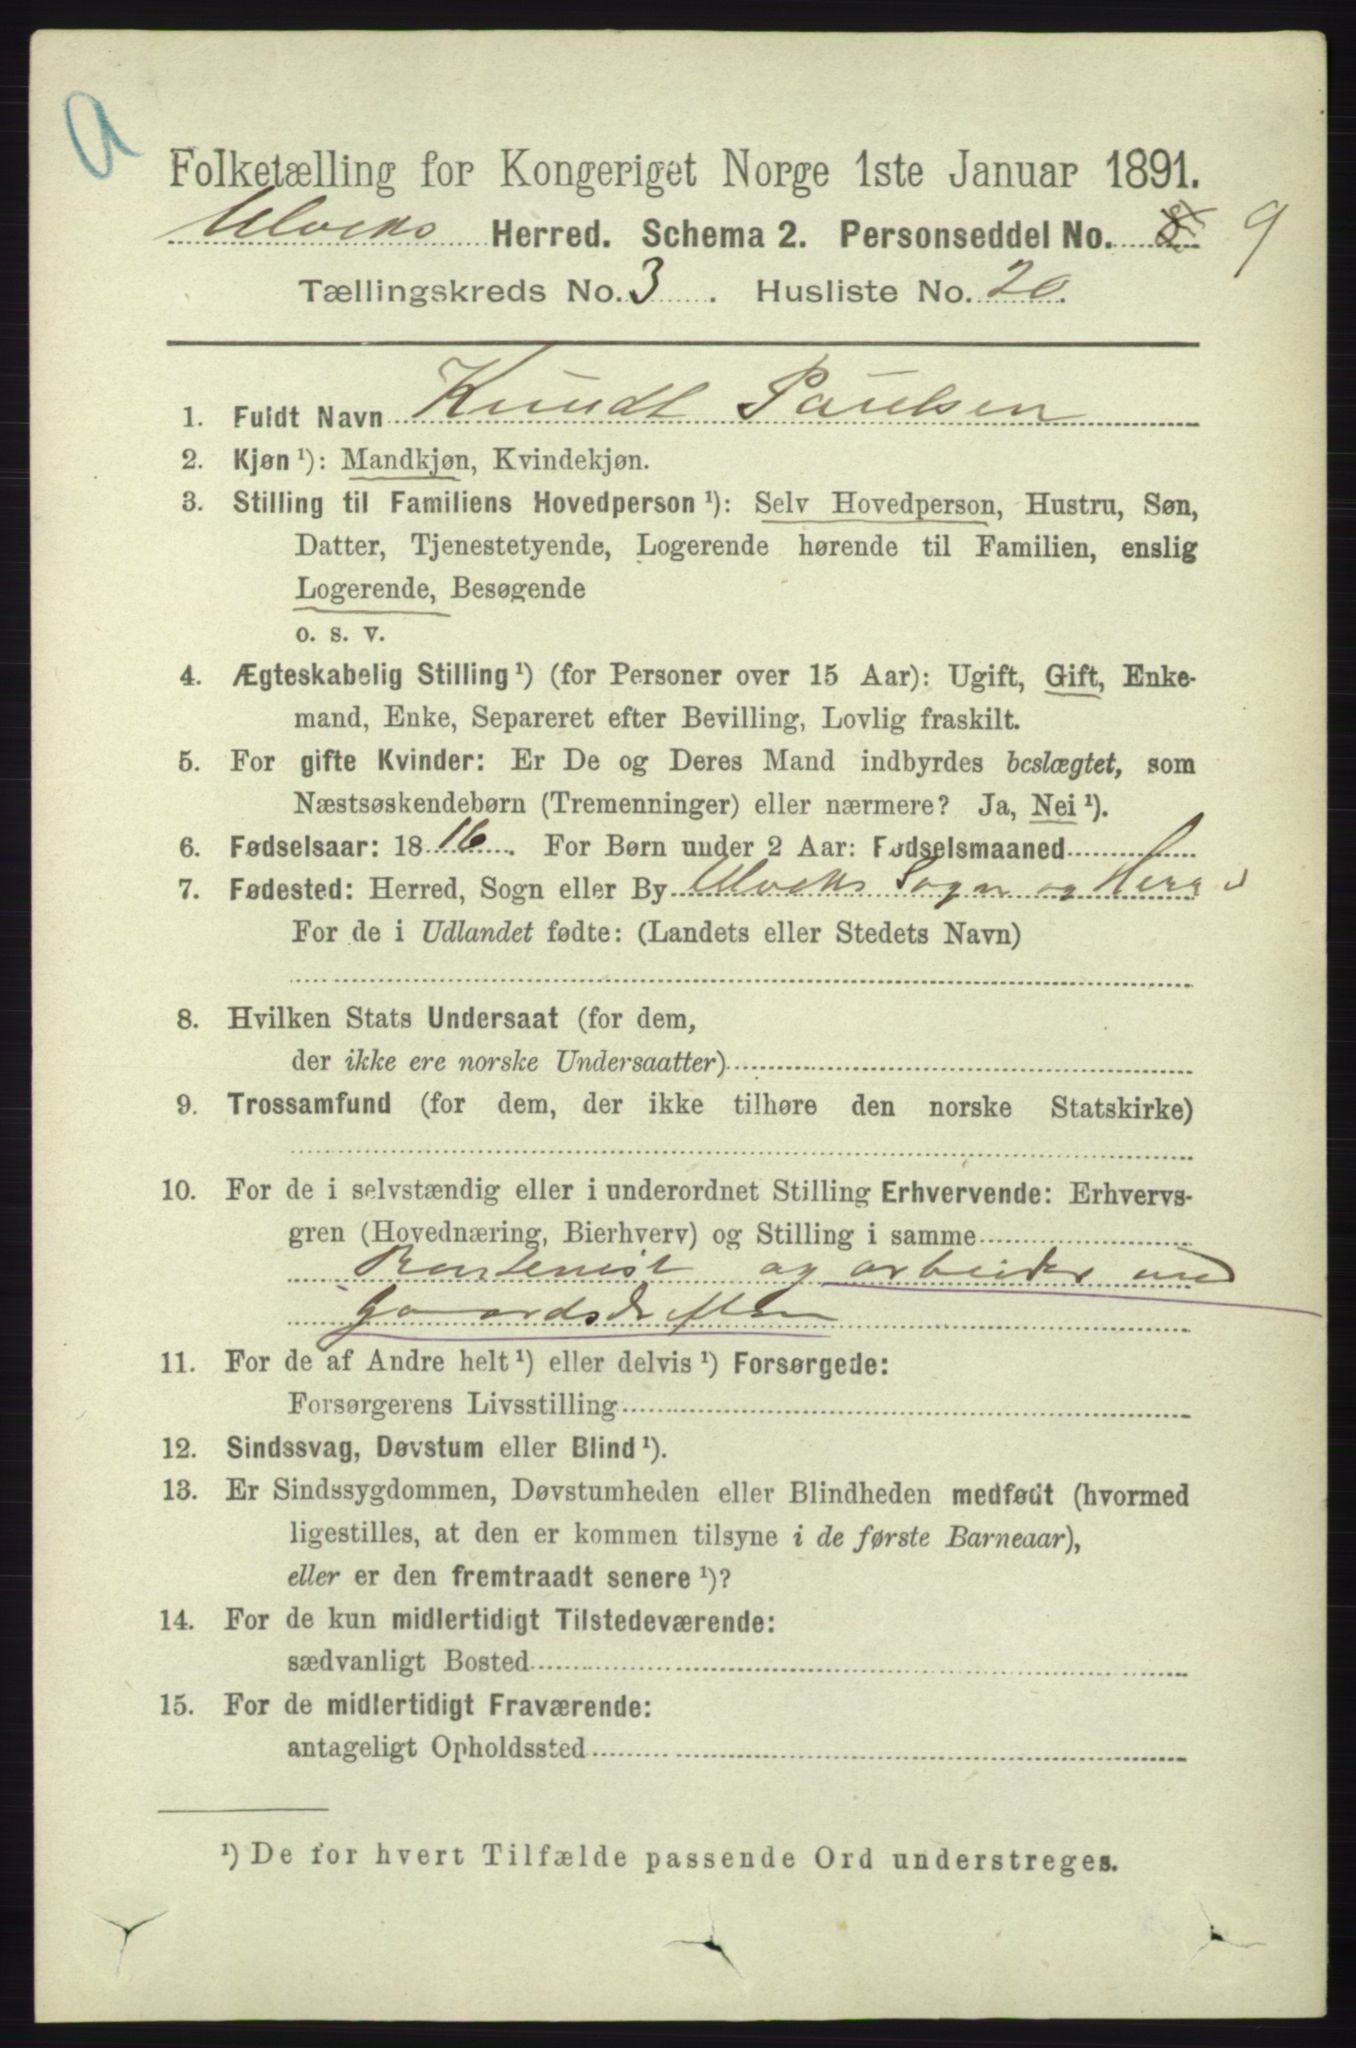 a
Folketælling for Kongeriget Norge 1ste Januar 1891.
Ulviks Herred. Schema 2. Personseddel No. 8 9
Tællingskreds No. 3. Husliste No. 20.
1. Fuldt Navn Knudt Paulsen
2. Kjøn ¹): Mandkjøn, Kvindekjøn.
3. Stilling til Familiens Hovedperson ¹): Selv Hovedperson, Hustru, Søn,
Datter, Tjenestetyende, Logerende hørende til Familien, enslig
Logerende, Besøgende
o. s. v.
4. Ægteskabelig Stilling ¹) (for Personer over 15 Aar): Ugift, Gift, Enke-
mand, Enke, Separeret efter Bevilling, Lovlig fraskilt.
5. For gifte Kvinder: Er De og Deres Mand indbyrdes beslægtet, som
Næstsøskendebørn (Tremenninger) eller nærmere? Ja, Nei ¹).
6. Fødselsaar: 1816. For Børn under 2 Aar: Fødselsmaaned
7. Fødested: Herred, Sogn eller By Ulviks Sogn og Herred
For de i Udlandet fødte: (Landets eller Stedets Navn)
8. Hvilken Stats Undersaat (for dem,
der ikke ere norske Undersaatter)
9. Trossamfund (for dem, der ikke tilhøre den norske Statskirke)
10. For de i selvstændig eller i underordnet Stilling Erhvervende: Erhvervs-
gren (Hovednæring, Bierhverv) og Stilling i samme
og arbeider ved
Gaardsdriften
11. For de af Andre helt ¹) eller delvis ¹) Forsørgede:
Forsørgerens Livsstilling
12. Sindssvag, Døvstum eller Blind ¹).
13. Er Sindssygdommen, Døvstumheden eller Blindheden medfødt (hvormed
ligestilles, at den er kommen tilsyne i de første Barneaar),
eller er den fremtraadt senere ¹)?
14. For de kun midlertidigt Tilstedeværende:
sædvanligt Bosted
15. For de midlertidigt Fraværende:
antageligt Opholdssted
¹) De for hvert Tilfælde passende Ord understreges.